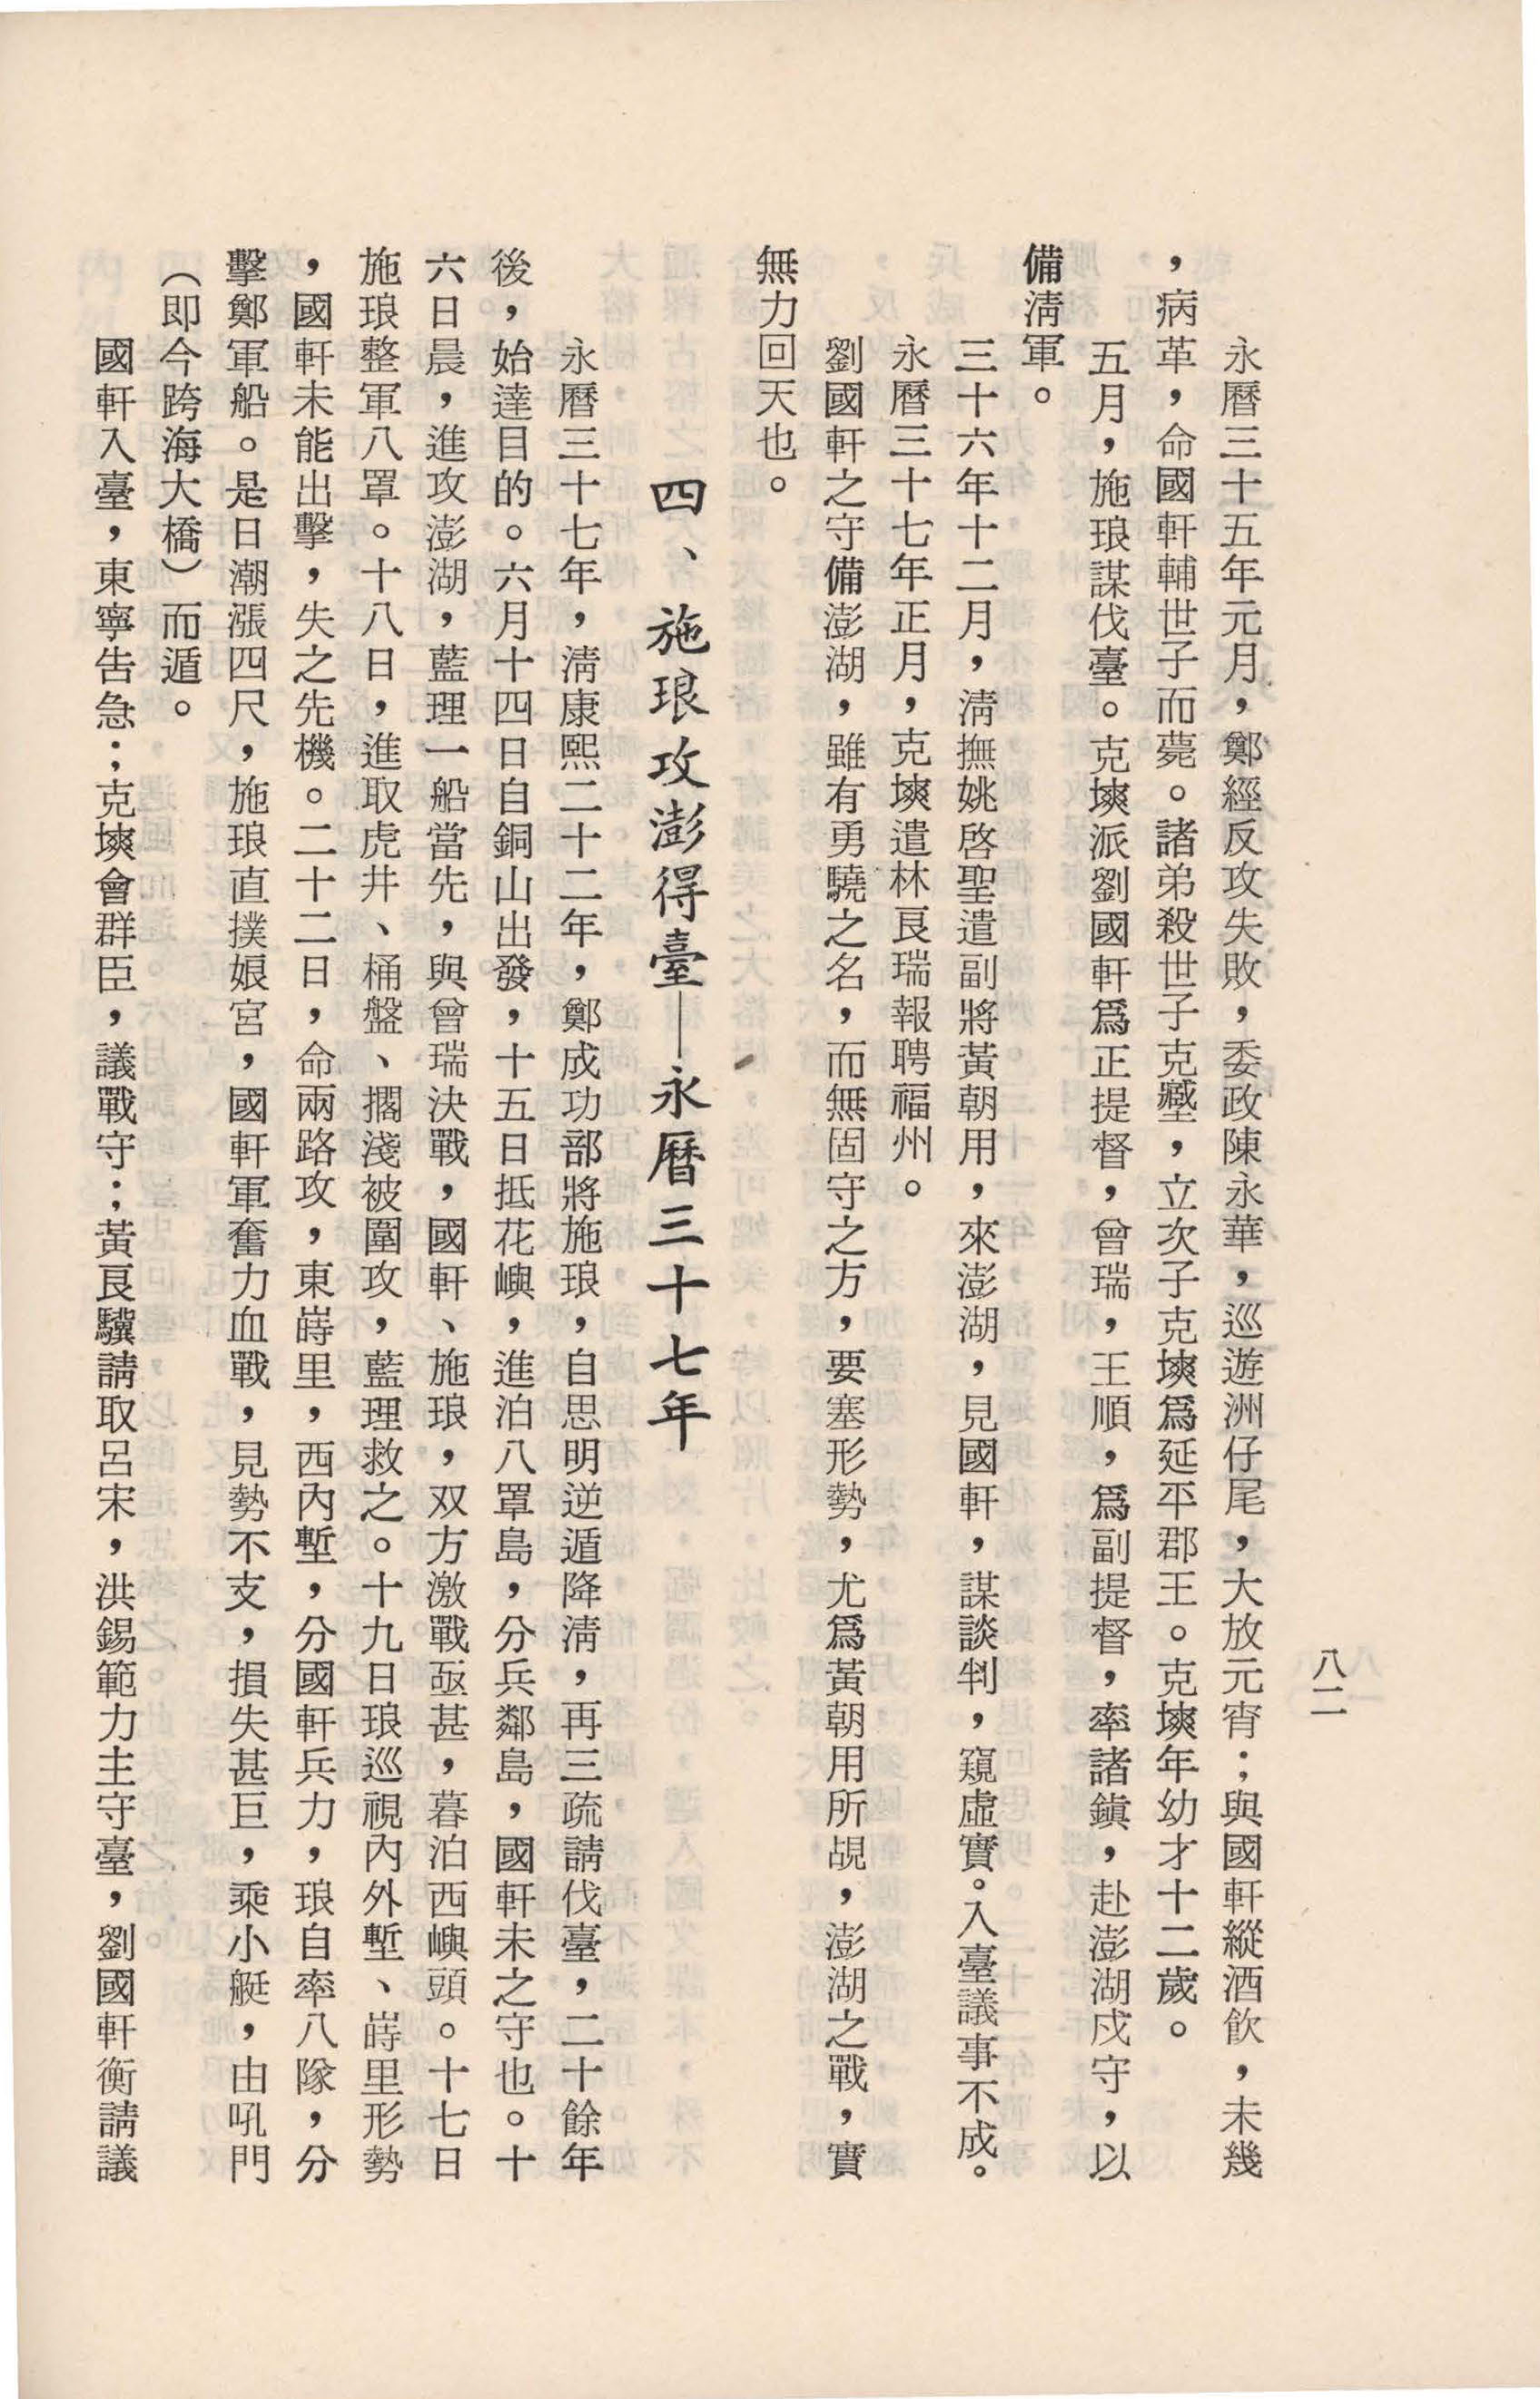 八二
永曆三十五年元月，鄭經反攻失敗，委政陳永華，巡遊洲仔尾，大放元宵；與國軒縱酒飲，未幾
，病革，命國軒輔世子而薨。諸弟殺世子克𡒉，立次子克塽爲延平郡王。克塽年幼才十二歲。
五月，施琅謀伐臺。克塽派劉國軒爲正提督，曾瑞，王順，爲副提督，率諸鎭，赴澎湖戍守，以
備淸軍。
三十六年十二月，淸撫姚啓聖遣副將黃朝用，來澎湖，見國軒，謀談判，窺虛實。入臺議事不成。
永曆三十七年正月，克塽遣林良瑞報聘福州。
劉國軒之守備澎湖，雖有勇驍之名，而無固守之方，要塞形勢，尤爲黃朝用所覘，澎湖之戰，實
無力回天也。
四、施琅攻澎得臺—永曆三十七年
永曆三十七年，淸康熙二十二年，鄭成功部將施琅，自思明逆遁降淸，再三疏請伐臺，二十餘年
後，始達目的。六月十四日自銅山出發，十五日抵花嶼，進泊八罩島，分兵鄰島，國軒未之守也。十
六日晨，進攻澎湖，藍理一船當先，與曾瑞決戰，國軒、施琅，双方激戰亟甚，暮泊西嶼頭。十七日
施琅整軍八罩。十八日，進取虎井、桶盤、擱淺被圍攻，藍理救之。十九日琅巡視內外塹、嵵里形勢
，國軒未能出擊，失之先機。二十二日，命兩路攻，東嵵里，西內塹，分國軒兵力，琅自率八隊，分
擊鄭軍船。是日潮漲四尺，施琅直撲娘宮，國軒軍奮力血戰，見勢不支，損失甚巨，乘小艇，由吼門
（即今跨海大橋）而遁。
國軒入臺，東寧告急；克塽會群臣，議戰守；黃良驥請取呂宋，洪錫範力主守臺，劉國軒衡請議